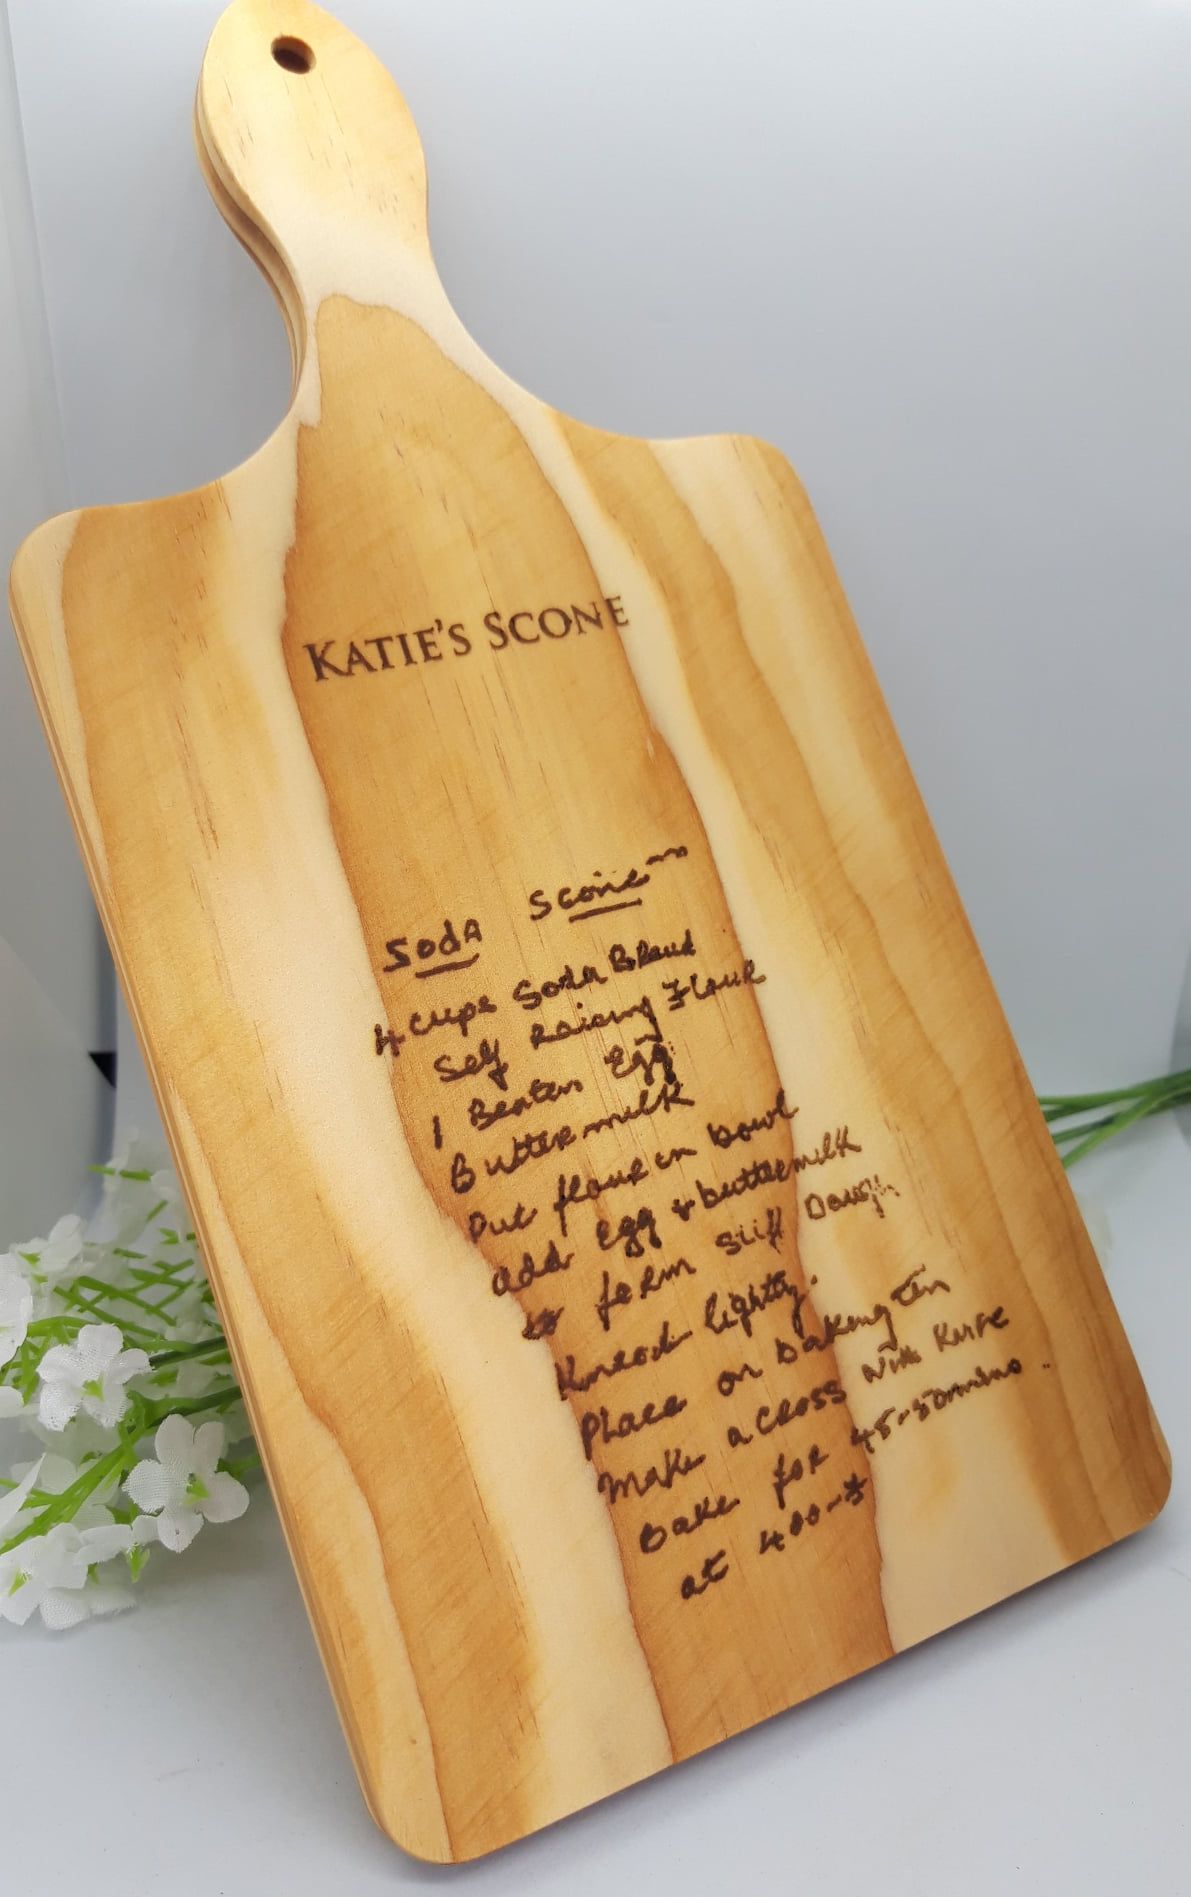 KATIE'S SCONE
Soda Scone
4 cups Soda Bread
Self Raising Flour
1 Beaten Egg
Buttermilk
Put flour in bowl
add Egg & buttermilk
to form stiff Dough
Knead lightly.
Place on baking tin
Make a cross with Knife
Bake for 45-50 mins.
at 400-F